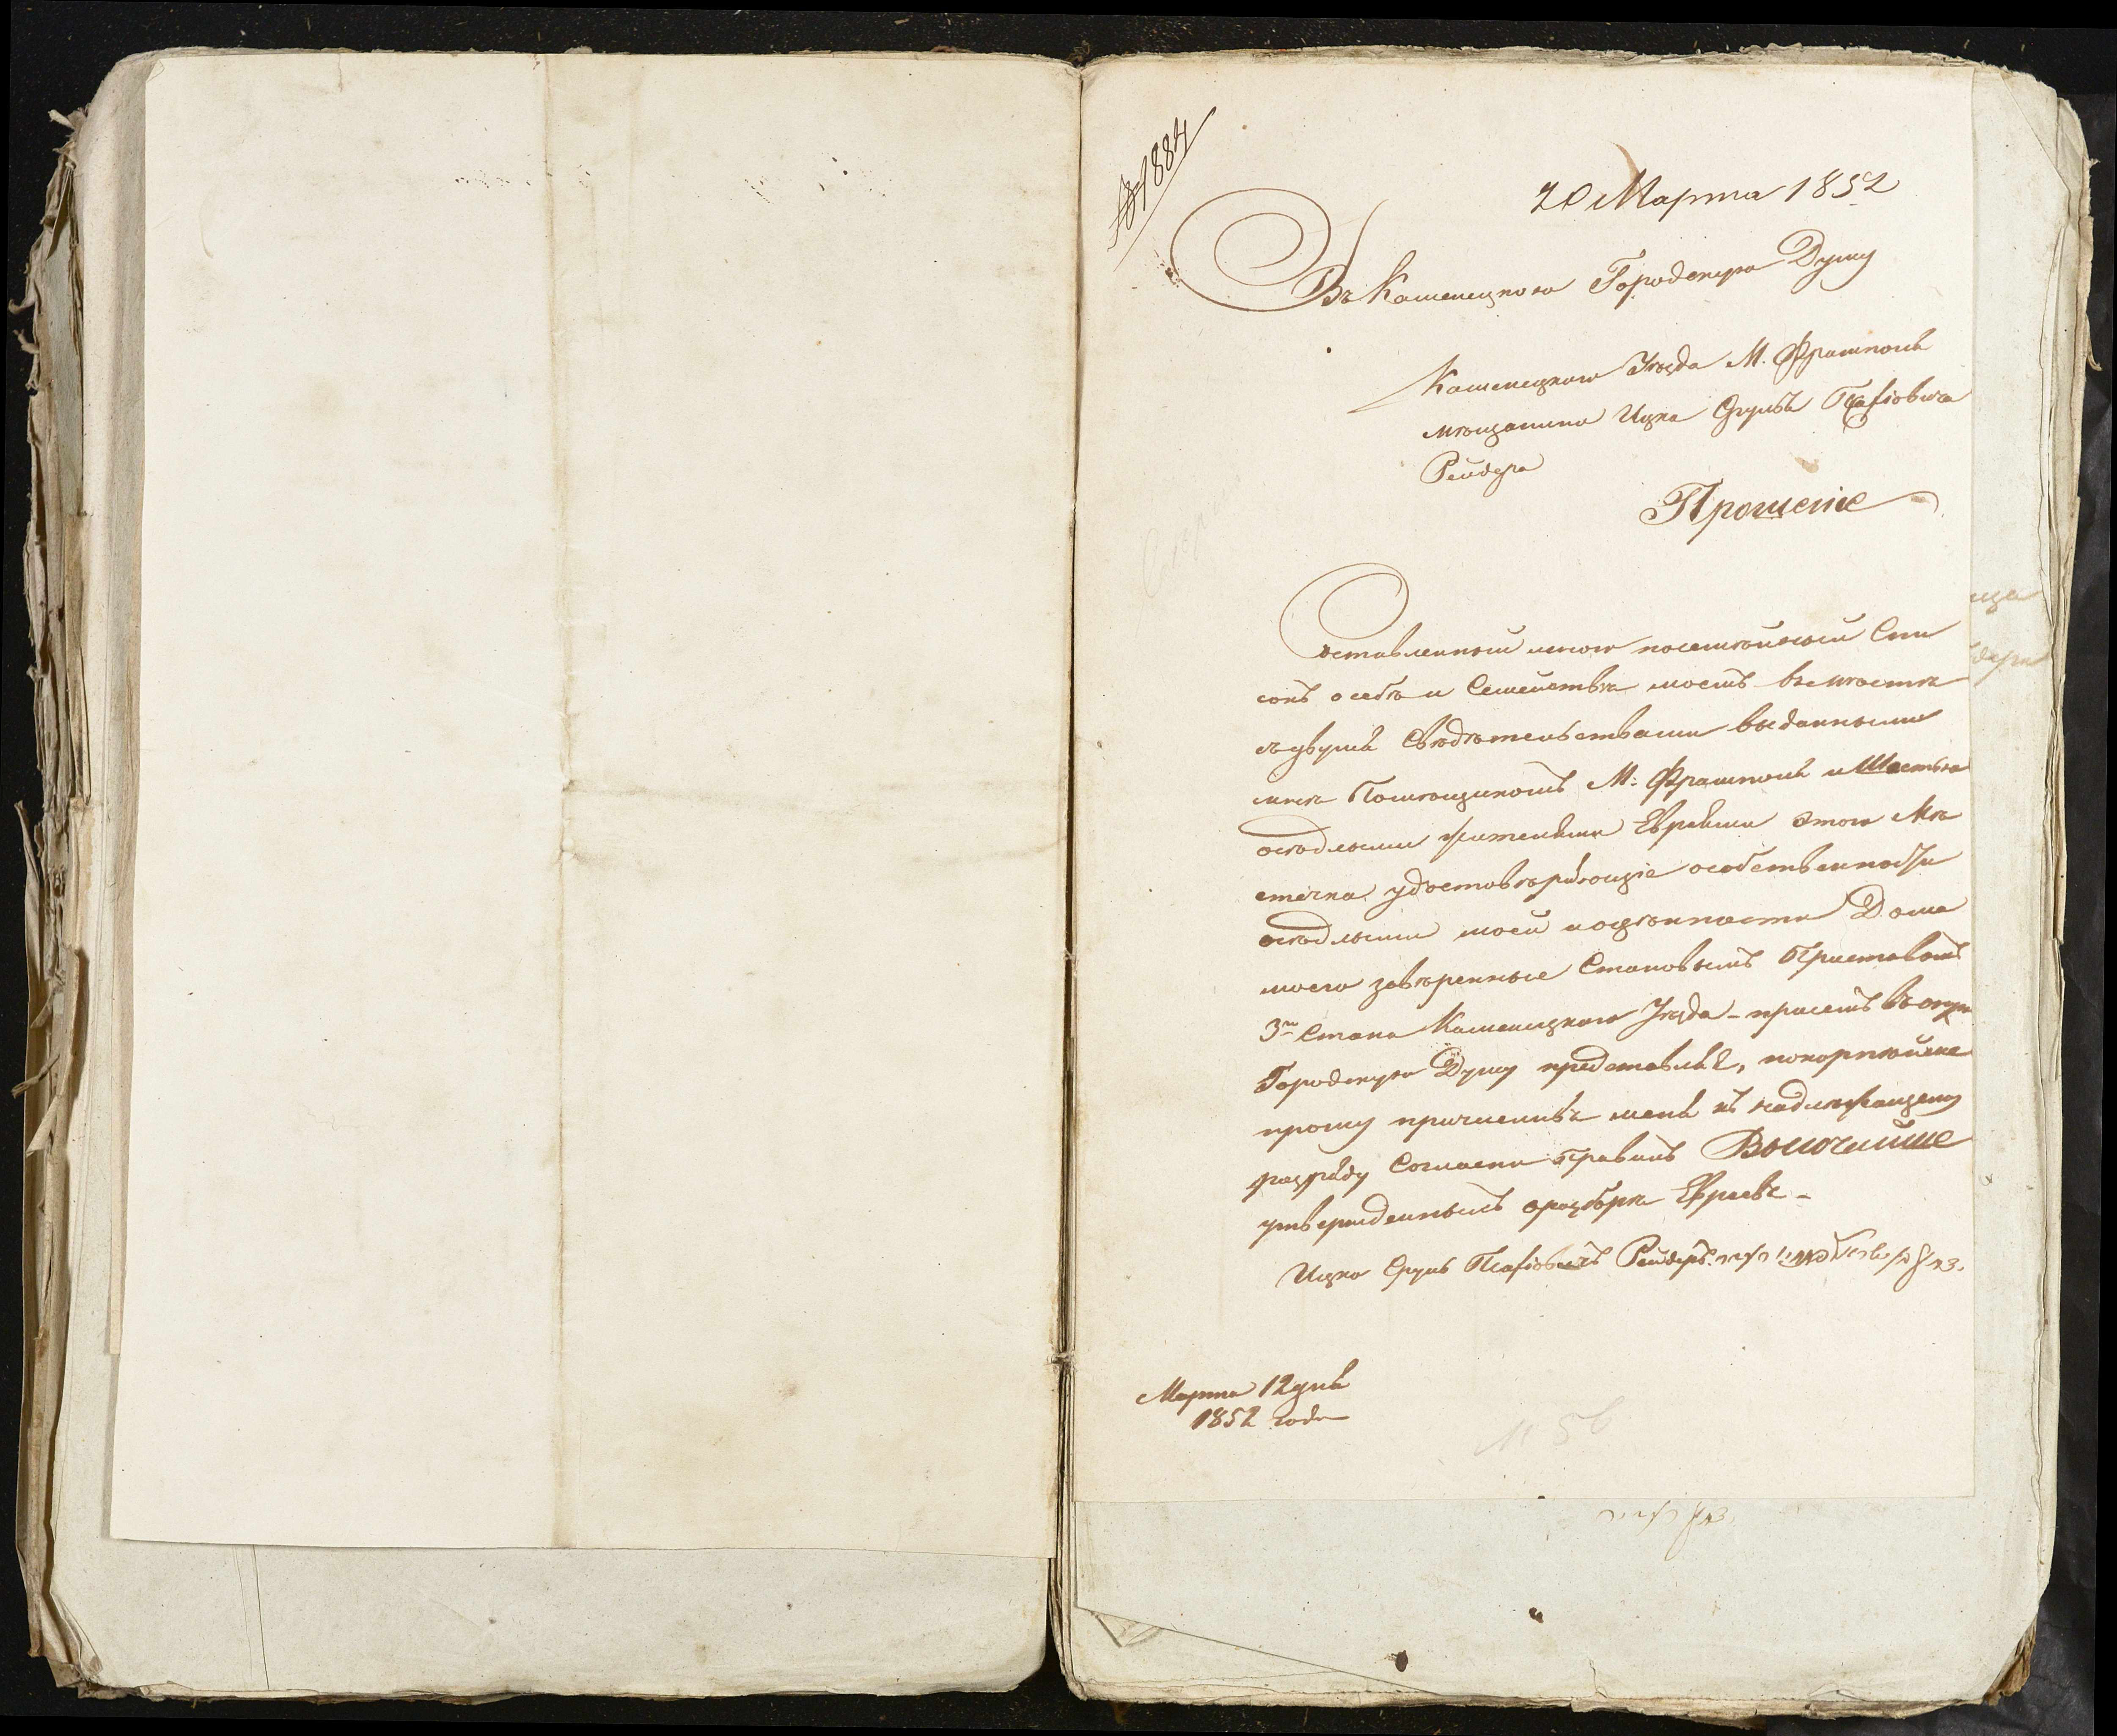 № 1884
20 Марта 1852
Въ Каменецкою Городскую Думу
Каменецкаго Уезда М. Фрампола
мещанина Ицка Сруля
Рейдера
Прошение
оставленный мною посемейный Спи
сокъ о себе и Семействе моемъ вместе
съ двумя Свидетельствами выданными
мне Помещикомъ М: Фрамполя и Шестью
оседлыми жителями Евреями этого Ме
стечка удостоверяющие о собственности
оседлыми моей и оценности Дома
моего заверенные Становымъ Приставомъ
3го Стана Каменецкаго Уезда - при семъ въ оную
Городскую Думу представляя, покорнейше
прошу причислить меня къ надлежащему
разряду Согласно Правилъ Высочайше
утвержденныхъ о разборе Евреевъ -
Ицко Сруль Рейдеръ
Марта 12 дня
1852 года
№ 56